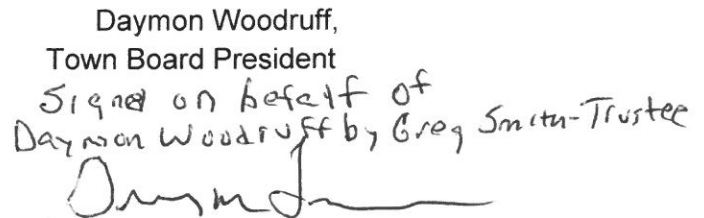 Daymon Woodruff,
Town Board President
Signed on behalf of
Daymon Woodruff by Greg Smith-Trustee